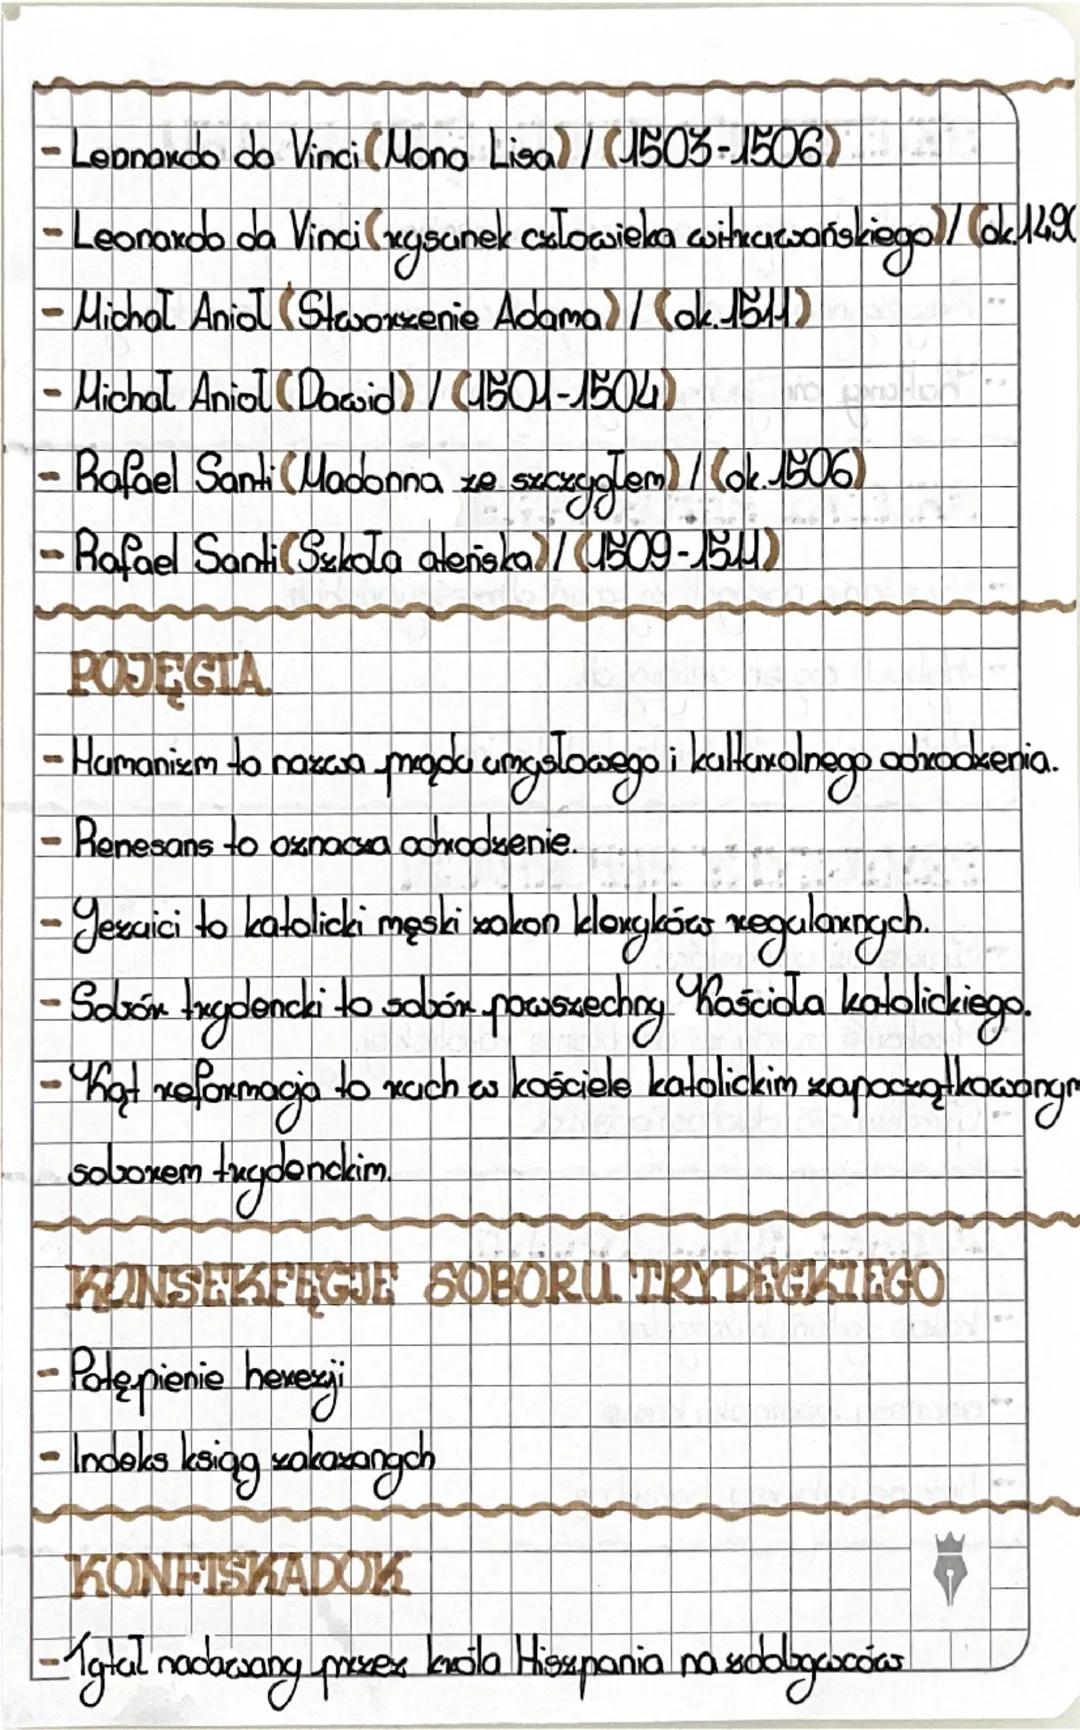 - Leonardo da Vinci (Mona Lisa) / (1503-1506)
- Leonardo da Vinci (rysunek człowieka witruwańskiego) / (ok.1490
- Michał Anioł (Stworzenie Adama) / (ok.1511)
- Michał Anioł (Dawid) / (1501-1504)
- Rafael Santi (Madonna ze szczygłem) / (ok.1506)
- Rafael Santi (Szkoła ateńska) / (1509-1511)
POJĘCIA
- Humanizm to nazwa prądu umysłowego i kulturalnego odrodzenia.
- Renesans to oznacza odrodzenie.
- Jezuici to katolicki męski zakon kleryków regularnych.
- Sobór trydencki to sobór powszechny Kościoła katolickiego.
- Kąt reformacja to ruch w kościele katolickim zapoczątkowanym
soborem trydenckim.
KONSEKFĘCJE SOBORU TRYDECKIEGO
- Potępienie herezji
- Indeks ksiąg zakazanych
KONFISKADOK
- Tytuł nadawany przez króla Hiszpania na zdobywców